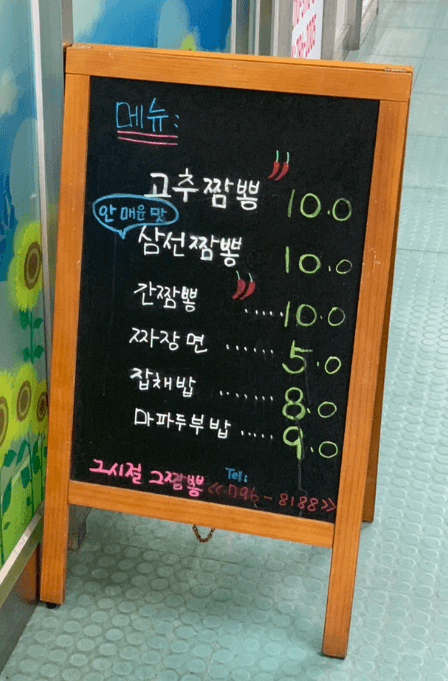 메뉴:
고추짬뽕 10.0
안 매운 맛
삼선짬뽕 10.0
간짬뽕 .....10.0
짜장면 ...... 5.0
잡채밥 ....... 8.0
마파두부밥 ..... 9.0
그시절 그짬뽕 Tel: <<796-8188>>